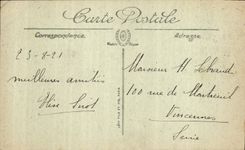 Carte Postale
Correspondance
Adresse
23-8-21
meilleures amitiés
Monsieur H
100 rue de Montreuil
Vincennes
Seine